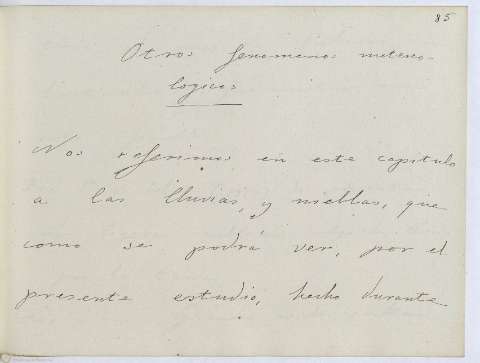 85
Otros fenomenos meteoro-
logicos
Nos referimos en este capitulo
a las lluvias, y nieblas, que
como se podrá ver, por el
presente estudio, hecho durante